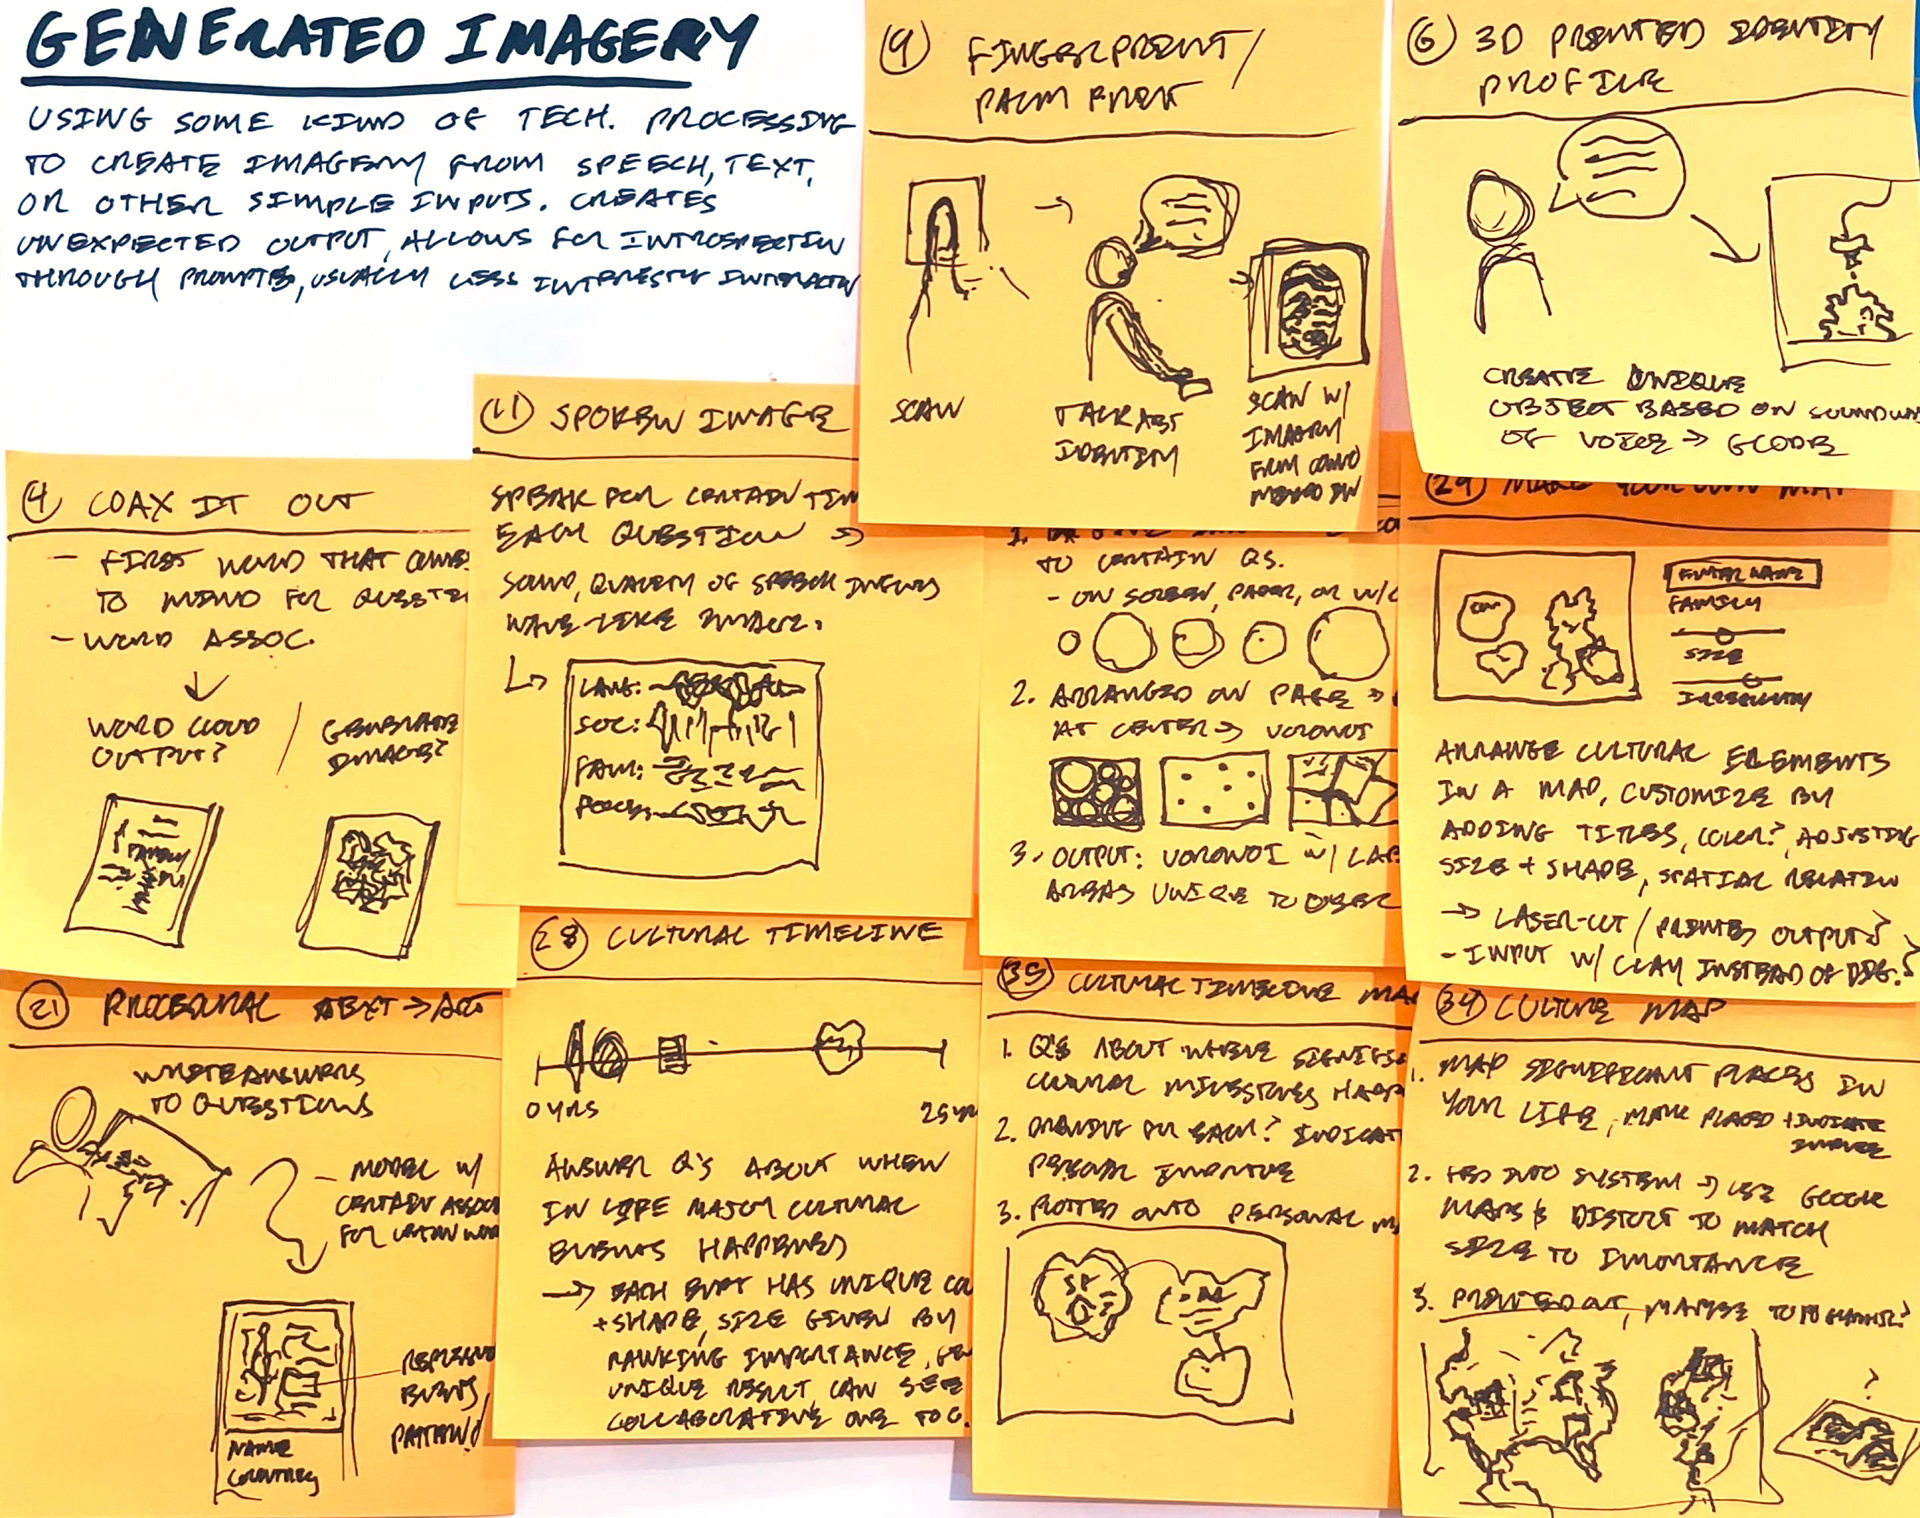 GENERATED IMAGERY
USING SOME KIND OF TECH. PROCESSING
TO CREATE IMAGERY FROM SPEECH, TEXT,
OR OTHER SIMPLE INPUTS. CREATES
UNEXPECTED OUTPUT, ALLOWS FOR INTROSPECTION
THROUGH PROMPTS, USUALLY LESS INTERESTING INTERACTION
9 FINGERPRINT/
PALM PRINT
SCAN
TALK ABT
IDENTITY
SCAN W/
IMAGERY
FROM CONVO
6 3D PRINTED IDENTITY
PROFILE
CREATE UNIQUE
OBJECT BASED ON
OF VOICE → GCODE
11 SPOKEN IMAGE
SPEAK FOR CERTAIN TIM
EACH QUESTION →
SOUND, QUALITY OF SPEECH INFORMS
WAVE-LIKE IMAGE.
LANG:
SOC:
FAM:
4 COAX IT OUT
- FIRST WORD THAT COMES
TO MIND FOR QUESTI
- WORD ASSOC.
WORD CLOUD
OUTPUT?
/ GENERATE
IMAGE?
FAMILY
1.
TO CERTAIN QS.
- ON SCREEN, PAPER, OR W/
2. ARRANGED ON PAGE →
AT CENTER → VORONOI
3. OUTPUT: VORONOI W/ LAB
AREAS UNIQUE TO
29 MAKE YOUR OWN MAP
ENTER NAME
FAMILY
SIZE
IRREGULARITY
ARRANGE CULTURAL ELEMENTS
IN A MAP, CUSTOMIZE BY
ADDING TITLES, COLOR?, ADJUSTING
SIZE + SHAPE, SPATIAL RELATION
→ LASER-CUT / PRINTED OUTPUT?
- INPUT W/ CLAY INSTEAD OF DIG.?
21 PROCEDURAL TEXT → ART
WRITE ANSWERS
TO QUESTIONS
- MODEL W/
CERTAIN ASSOC
FOR CERTAIN WOR
NAME
COUNTRY
28 CULTURAL TIMELINE
0 YRS
25 YR
ANSWER Q'S ABOUT WHEN
IN LIFE MAJOR CULTURAL
EVENTS HAPPENED
→ EACH EVENT HAS UNIQUE CO
+ SHAPE, SIZE GIVEN BY
RANKING IMPORTANCE, GE
UNIQUE RESULT, CAN SEE
COLLABORATIVE ONE TOO.
35 CULTURAL TIMELINE MAP
1. Q'S ABOUT WHERE SIGNIFIC
CULTURAL MILESTONES HAPP
2. DRAWING FOR EACH? INDICAT
PERSONAL
3. PLOTTED ONTO PERSONAL M
34 CULTURE MAP
1. MAP SIGNIFICANT PLACES IN
YOUR LIFE, MARK PLACES + INDICATE
2. FED INTO SYSTEM → USE GOOGLE
MAPS & DISTORT TO MATCH
SIZE TO IMPORTANCE
3. PRINTED OUT, MAYBE
?